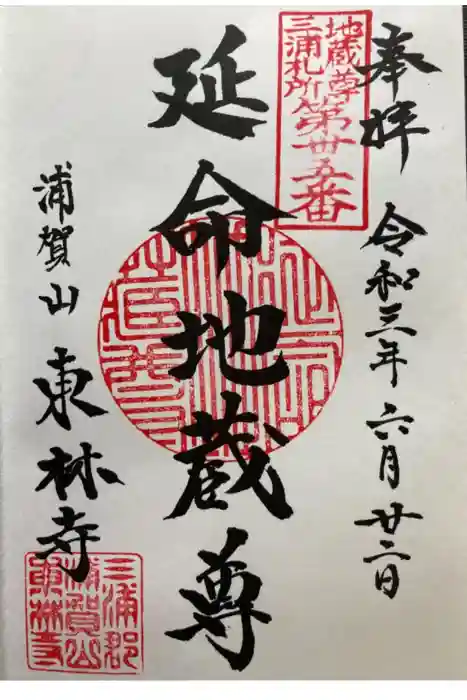 奉拝
令和三年六月廿二日
地蔵尊
三浦札所第卅五番
延命地蔵尊
浦賀山
東林寺
三浦郡
浦賀山
東林寺